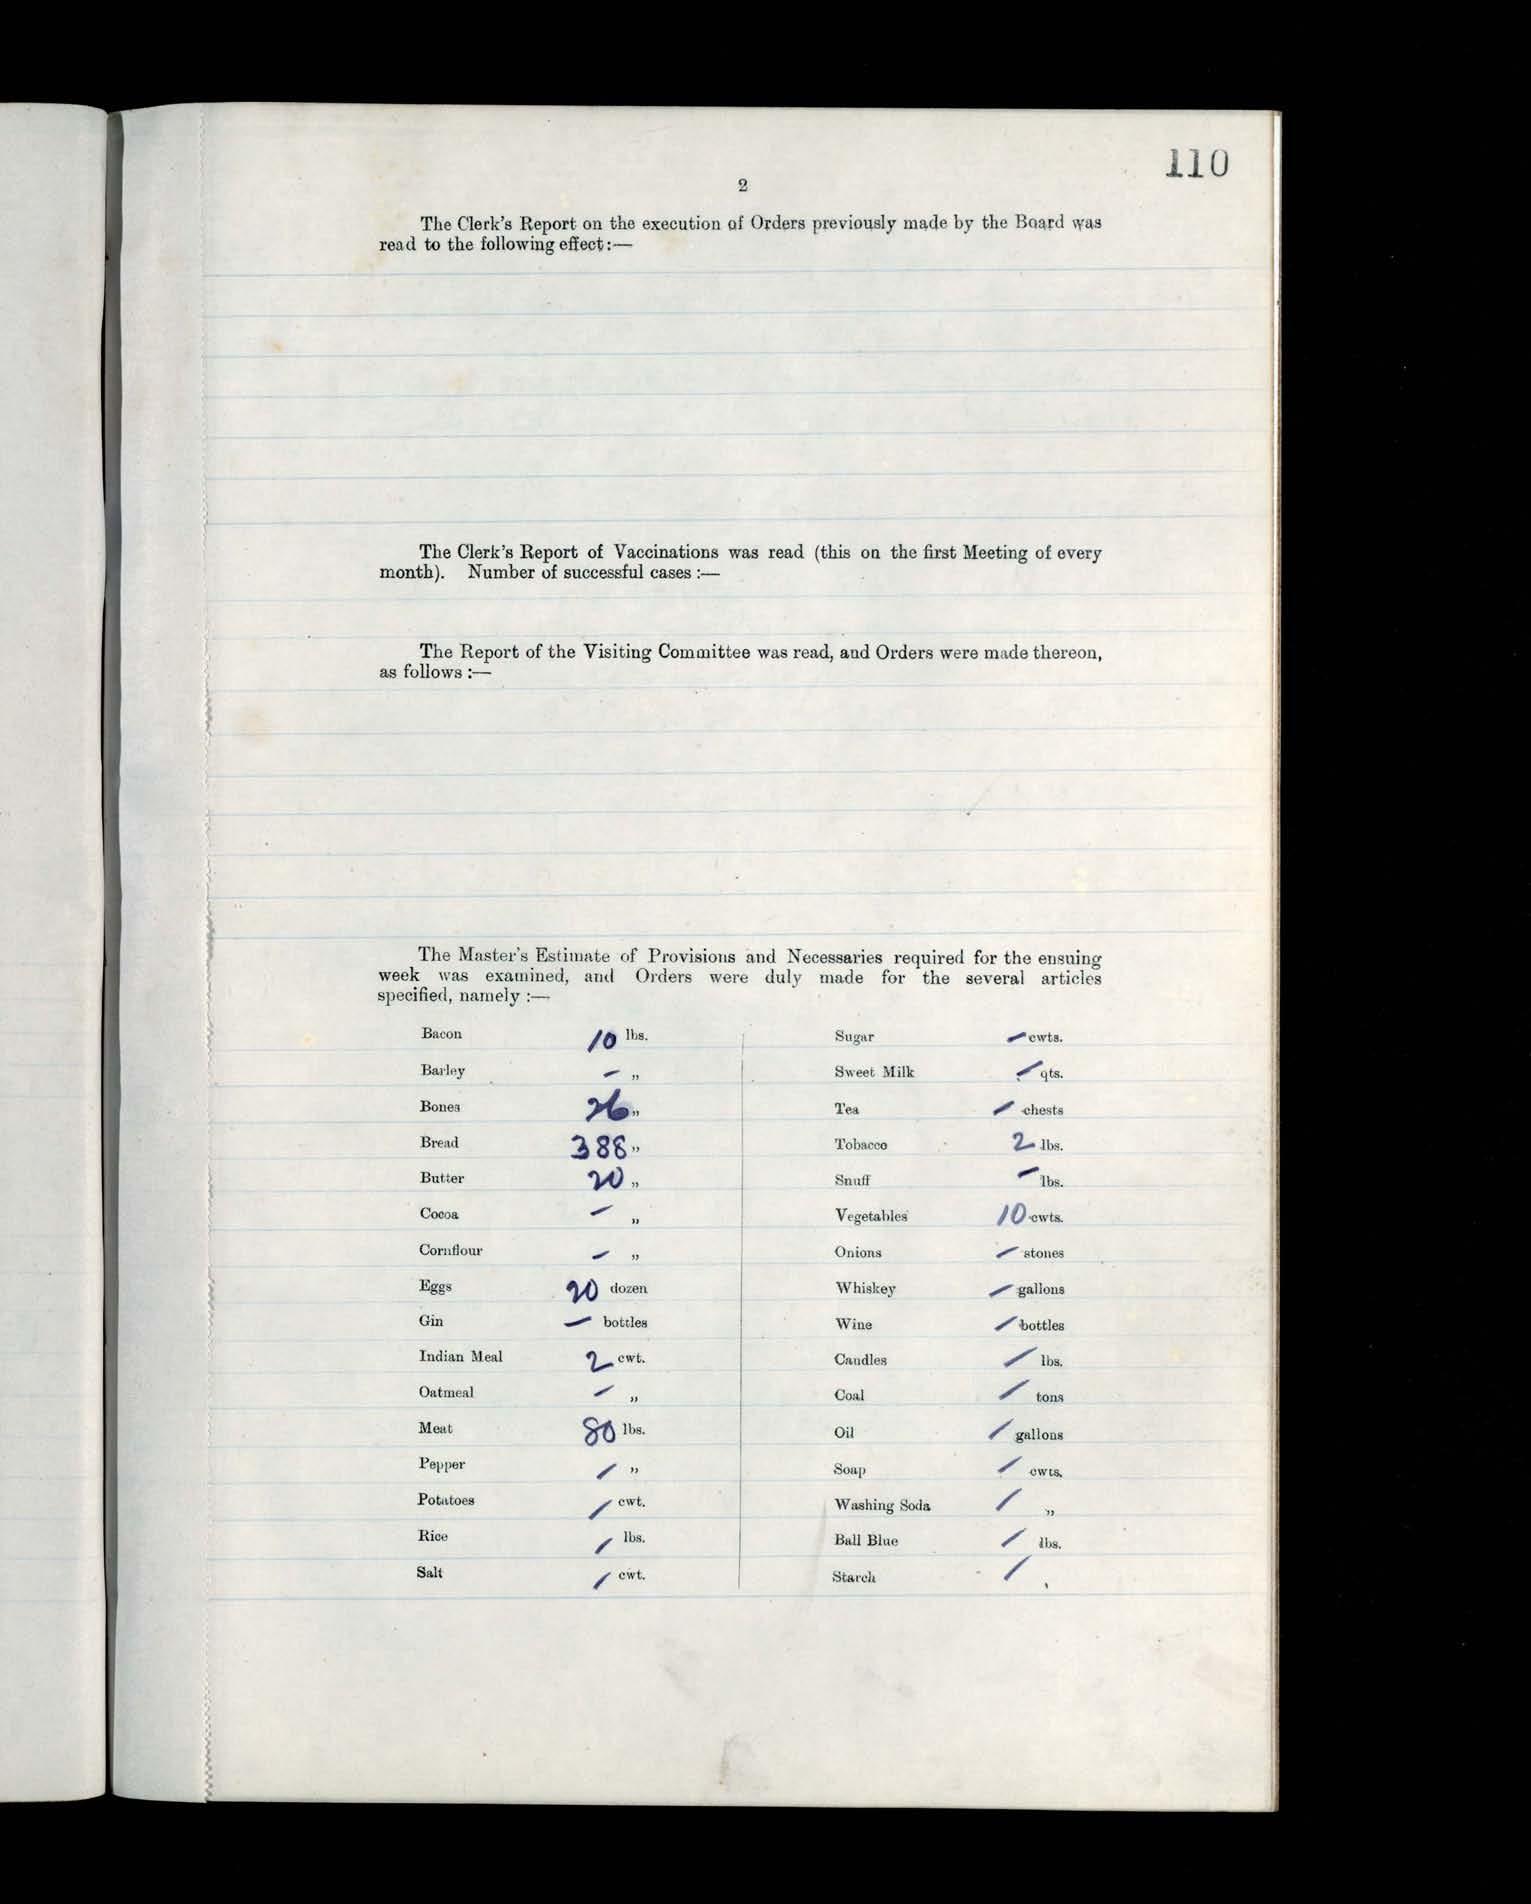 110
2
The Clerk's Report on the execution of Orders previously made by the Board was
read to the following effect:—
The Clerk's Report of Vaccinations was read (this on the first Meeting of every
month). Number of successful cases :—
The Report of the Visiting Committee was read, and Orders were made thereon,
as follows :—
The Master's Estimate of Provisions and Necessaries required for the ensuing
week was examined, and Orders were duly made for the several articles
specified, namely :—
Bacon 10 lbs.
Barley – „
Bones 26 „
Bread 388 „
Butter 20 „
Cocoa – „
Cornflour – „
Eggs 20 dozen
Gin – bottles
Indian Meal 2 cwt.
Oatmeal – „
Meat 80 lbs.
Pepper / „
Potatoes / cwt.
Rice / lbs.
Salt / cwt.
Sugar – cwts.
Sweet Milk – qts.
Tea – chests
Tobacco 2 lbs.
Snuff – lbs.
Vegetables 10 cwts.
Onions – stones
Whiskey – gallons
Wine / bottles
Candles / lbs.
Coal / tons
Oil / gallons
Soap / cwts.
Washing Soda / „
Ball Blue / lbs.
Starch / ,